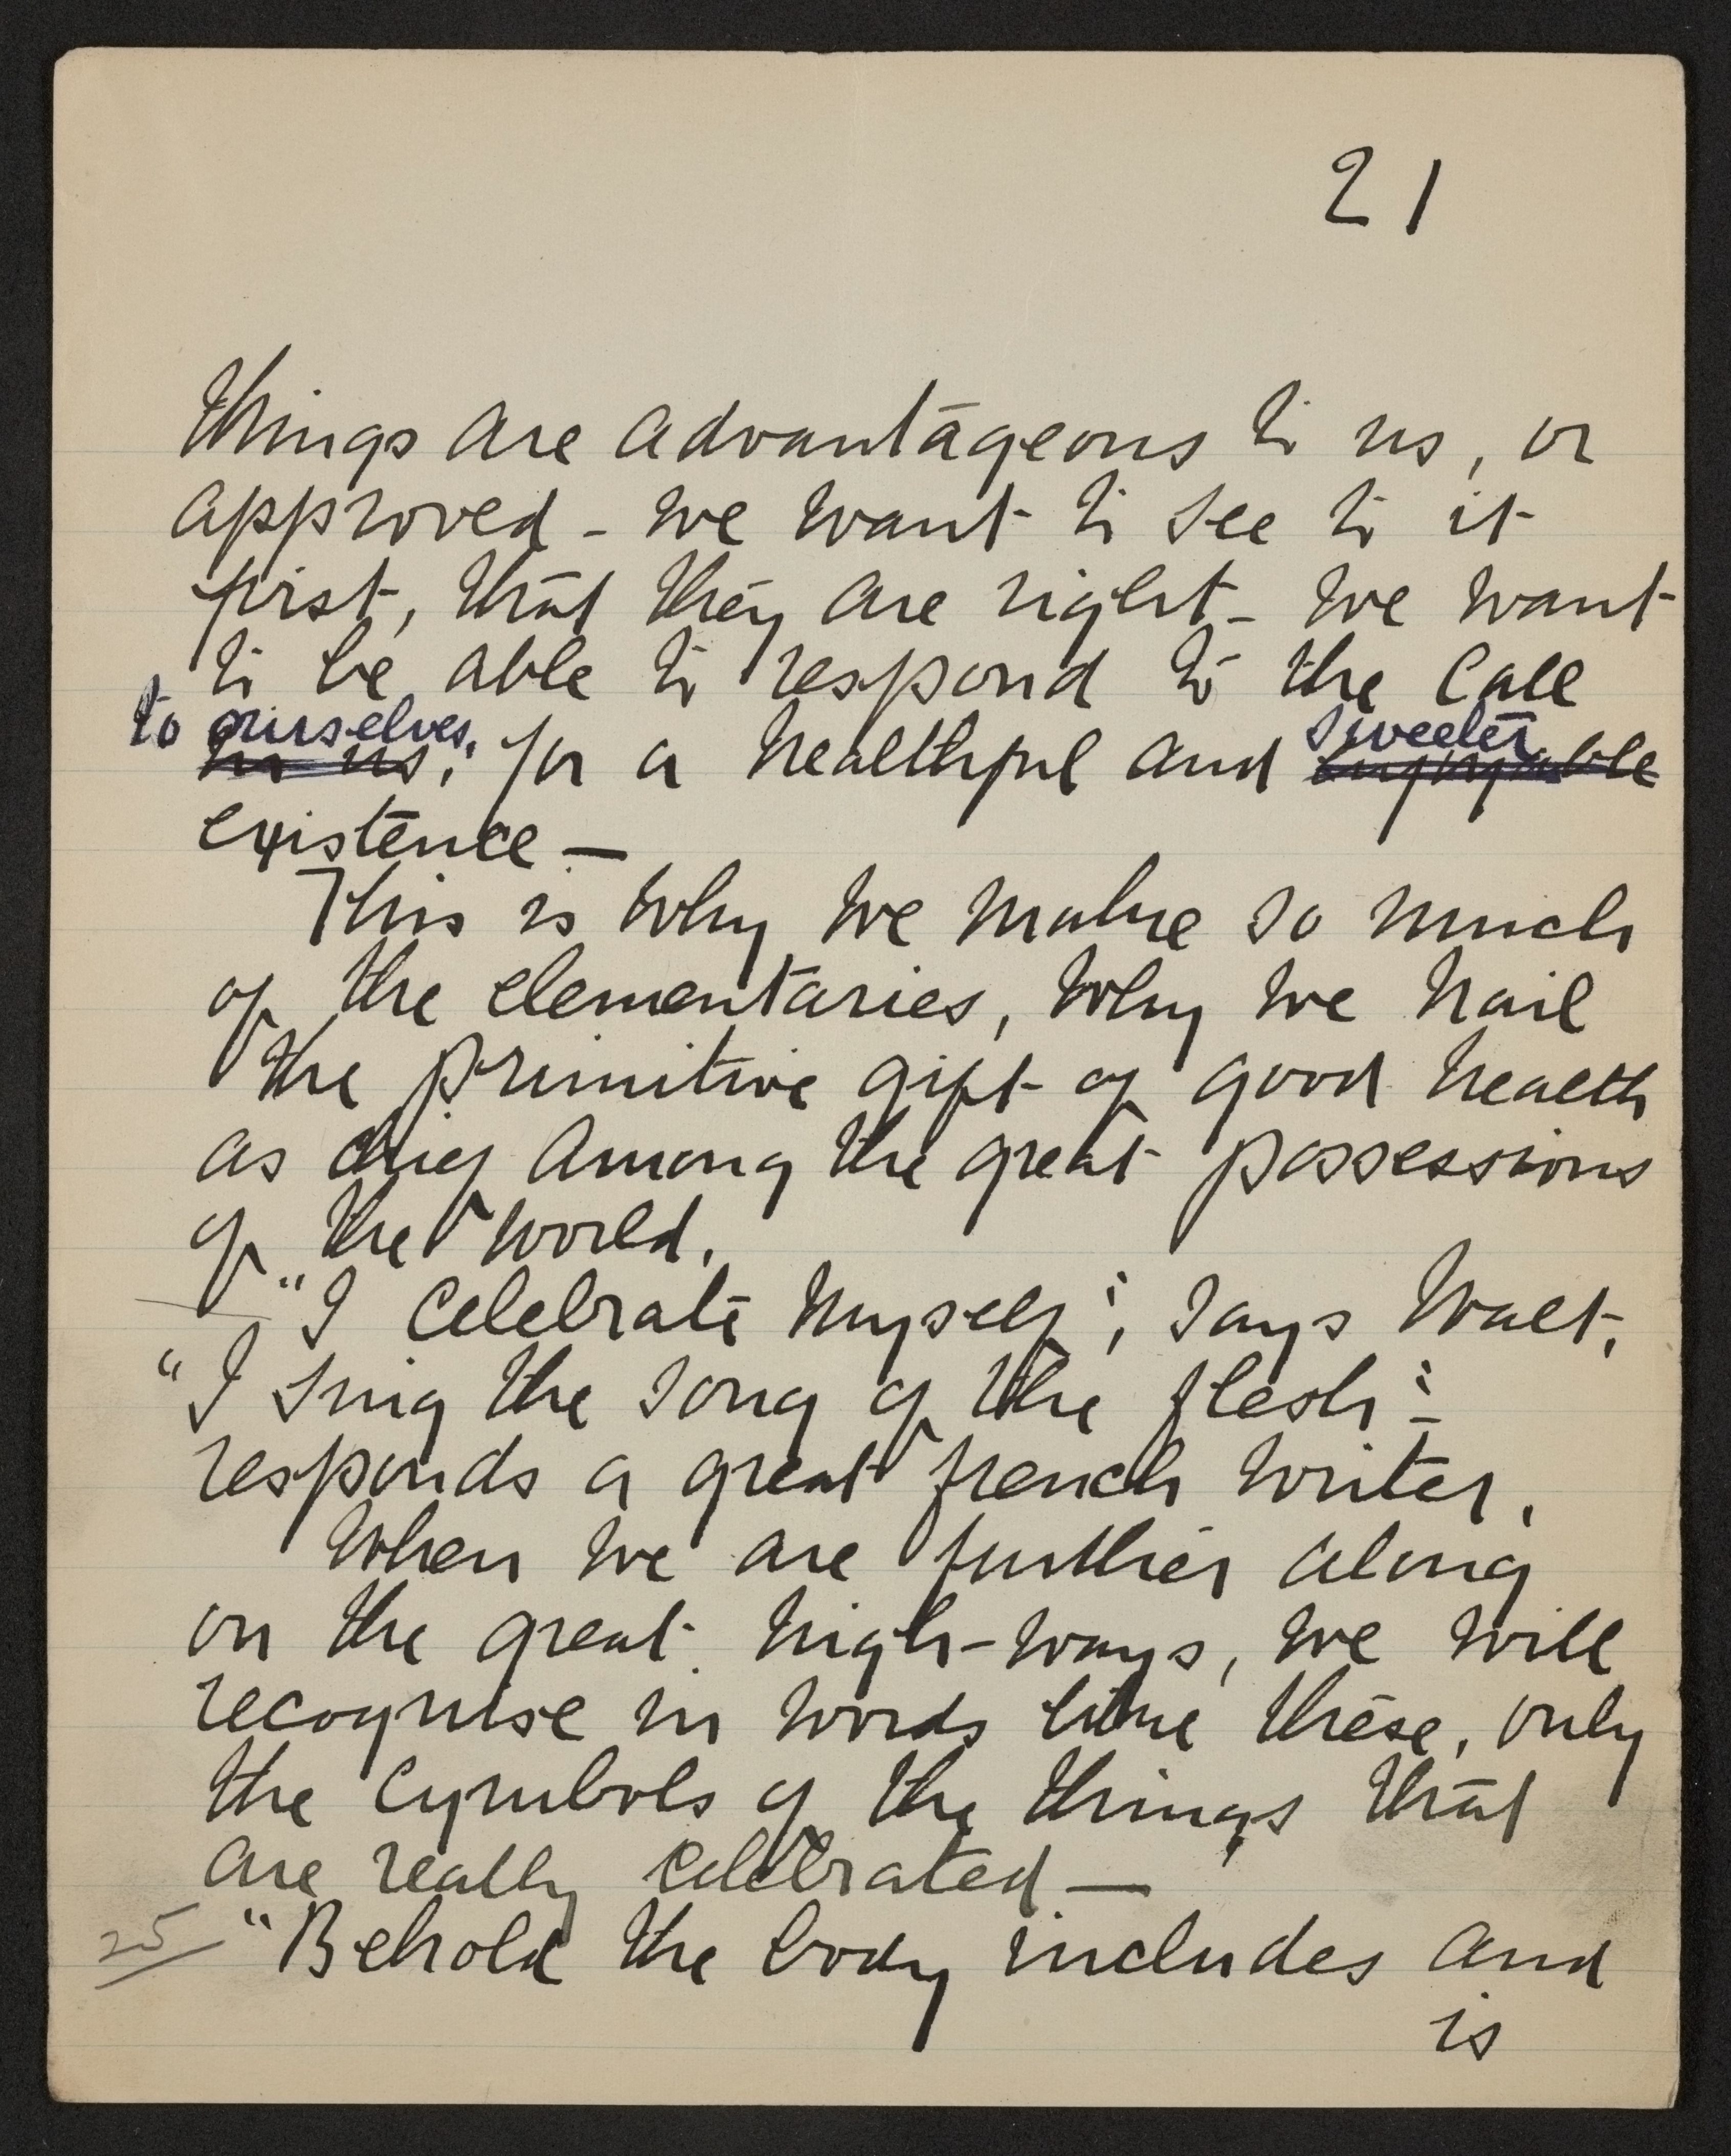 21
things are advantageous to us, or
approved - we want to see to it
first, that they are right - we want
to be able to respond to the call
to ourselves, sweeter
in us; for a healthful and enjoyable
existence —
This is why we make so much
of the elementaries, why we hail
the primitive gift of good health
as chief among the great possessions
of the world.
"I celebrate myself", says Walt,
"I sing the song of the flesh"-
responds a great french writer.
When we are further along
on the great high-ways, we will
recognise in words like these, only
the cymbols of the things that
are really celebrated —
25 "Behold the body includes and
is